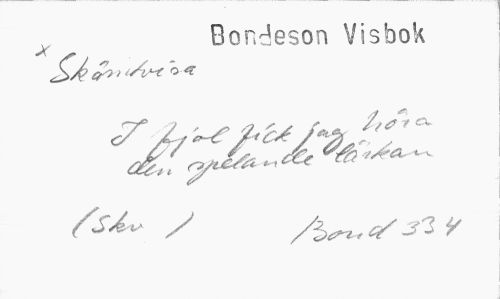 Bondeson Visbok
x Skämtvisa
I fjol fick jag höra
den spelande lärkan
(Skv )
Bond 334